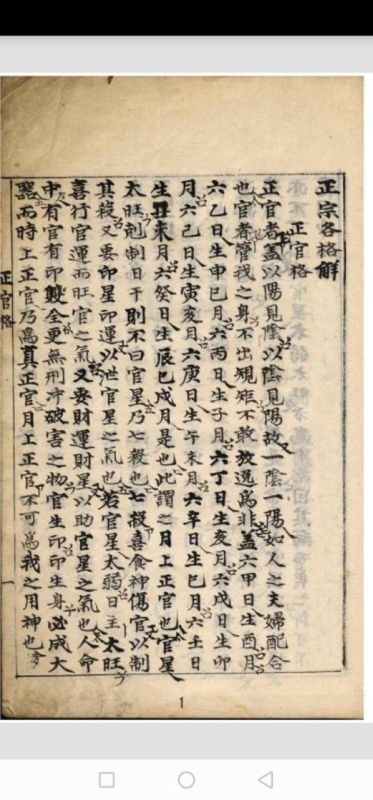 正宗各格解
正官格
正官者盖以陽見陰以陰見陽故一陰一陽如人之夫婦配合
也官者管我之身不出規矩不敢放逸爲非盖六甲日生酉月
六乙日生申巳月六丙日生子月六丁日生亥月六戊日生卯
月六己日生寅亥月六庚日生午未月六辛日生巳月六壬日
生丑未月六癸日生辰巳戌月是也此謂之月上正官也官星
太旺剋制日干則不曰官星乃七殺也七殺喜食神傷官以制
其殺又要印星印運以泄官星之氣也若官星太弱日主太旺
喜行官運而旺官之氣又要財運財星以助官星之氣也人命
中有官有印雙全更無刑冲破害之物官生印印生身必成大
器而時上正官乃爲眞正官月上正官不可爲我之用神也
正官格
一
1